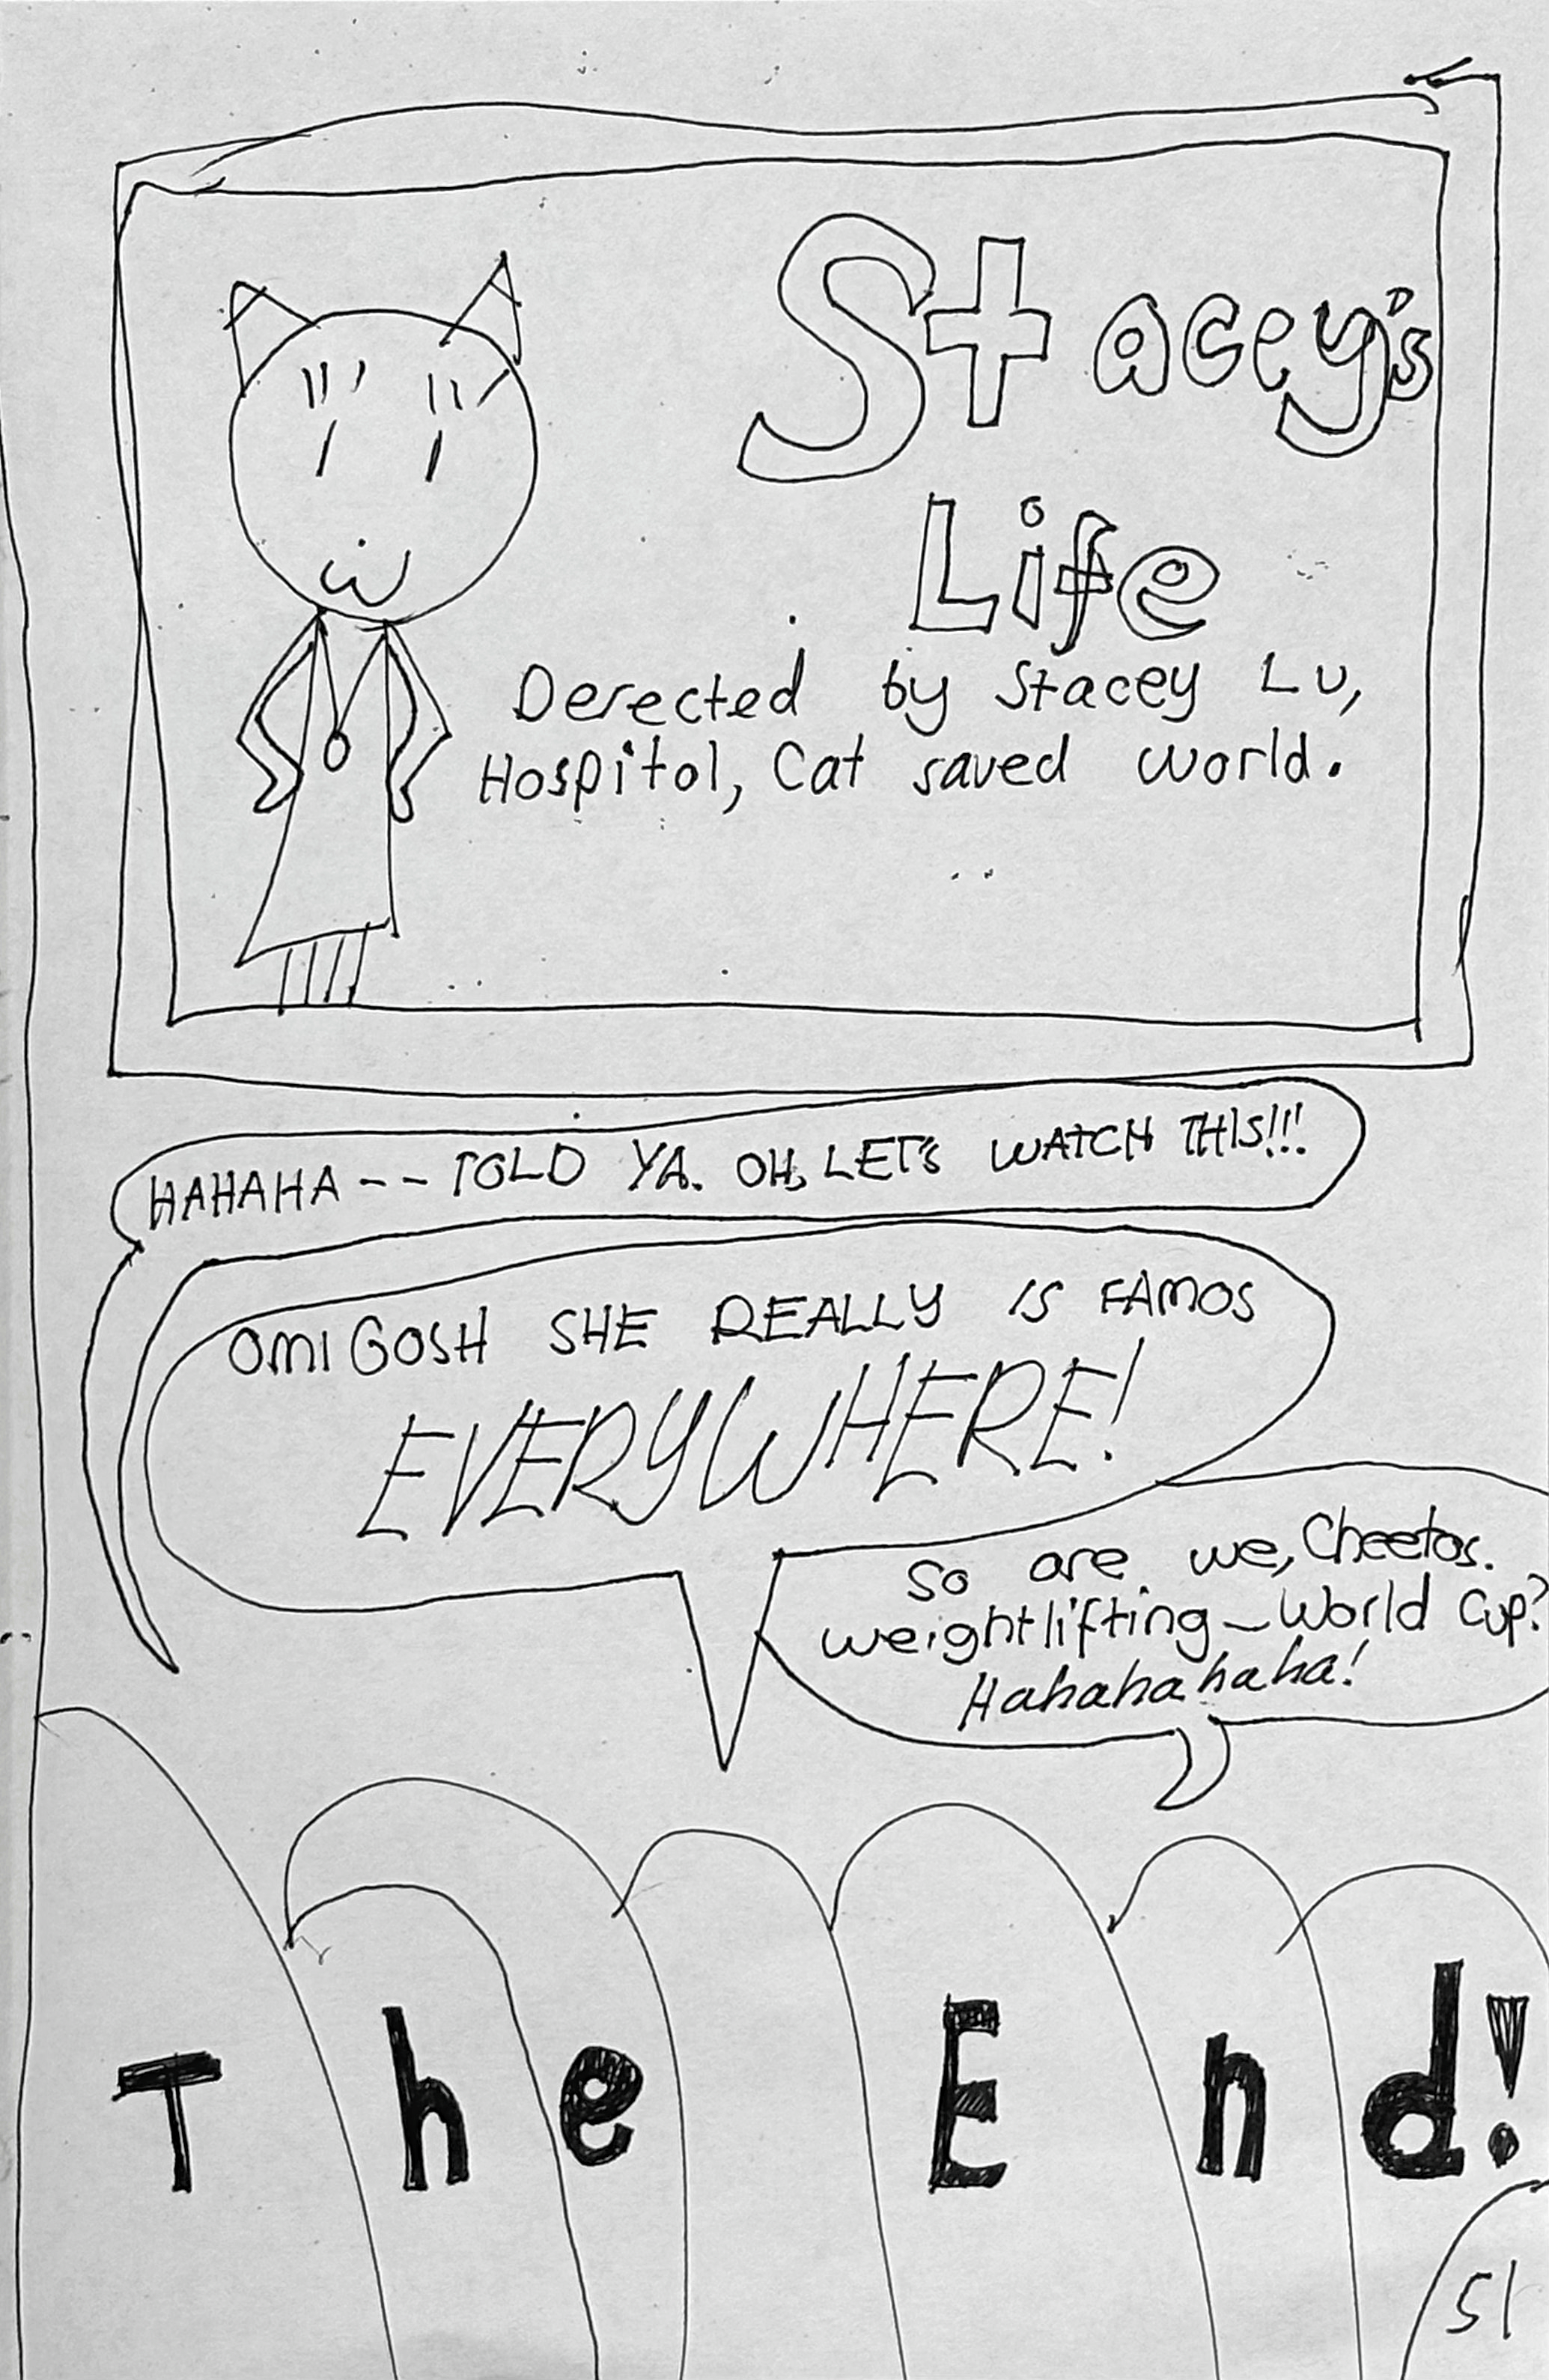 Stacey's
Life
Derected by Stacey Lu,
Hospitol, Cat saved world.
HAHAHA -- TOLD YA. OH, LET'S WATCH THIS!!!
OMIGOSH SHE REALLY IS FAMOS
EVERYWHERE!
So are we, Cheetos.
weightlifting — World Cup?
Hahahahahaha!
The End!
51